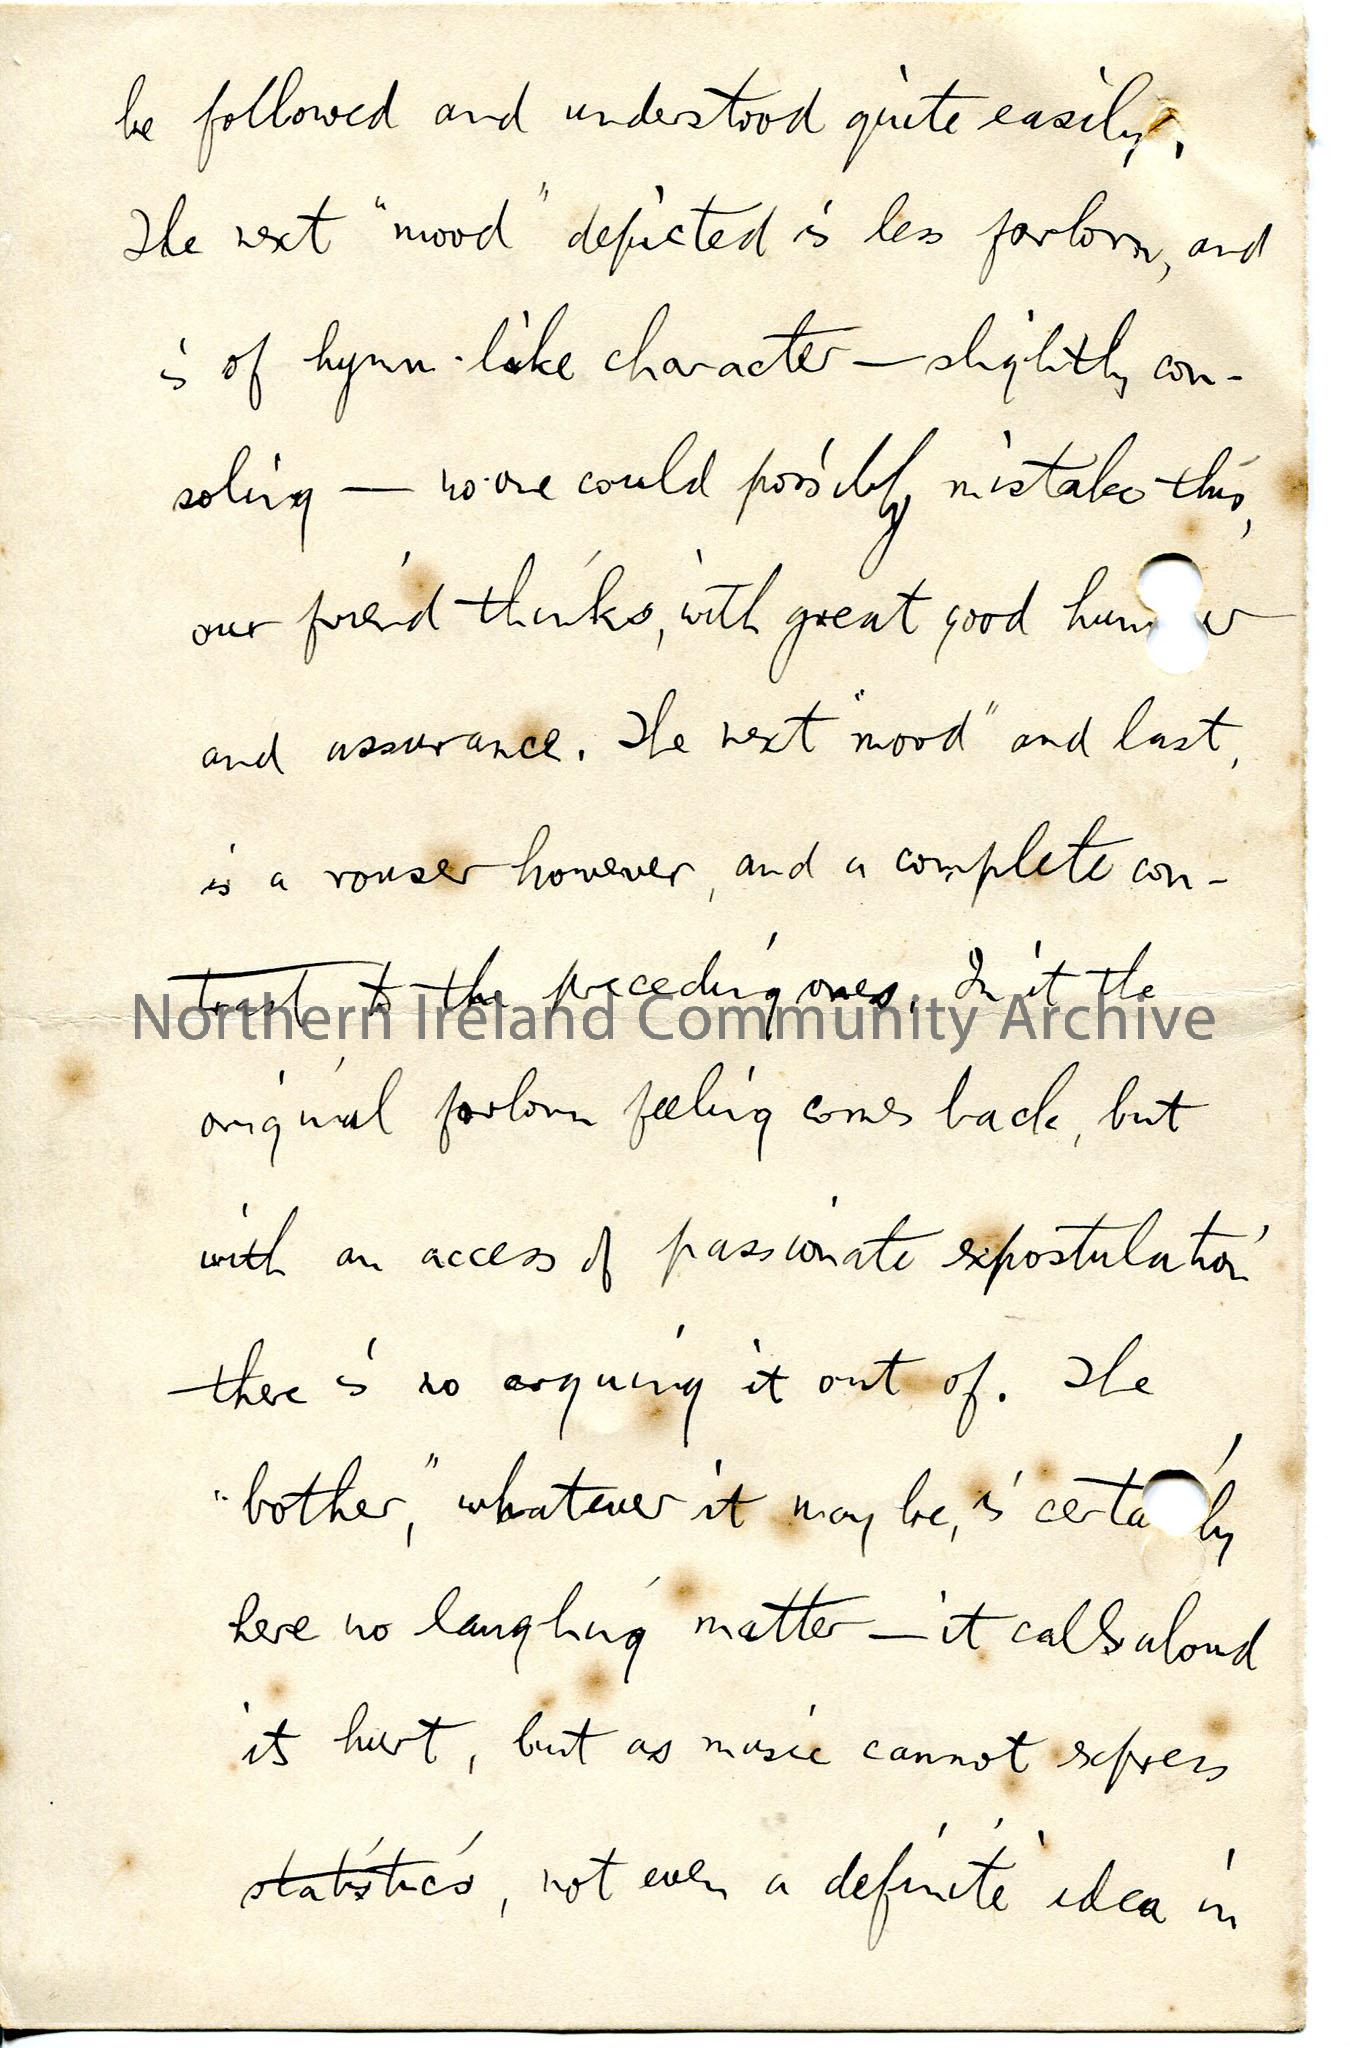 be followed and understood quite easily.
The next "mood" depicted is less forlorn, and
is of hymn-like character — slightly con-
soling — no one could possibly mistake this,
our friend thinks, with great good hum r
and assurance. The next "mood" and last,
is a rouser however, and a complete con-
trast to the preceding ones. In it the
Northern Ireland Community Archive
original forlorn feeling comes back, but
with an access of passionate expostulation
there is no arguing it out of. The
"bother," whatever it may be, is certa ly
here no laughing matter — it calls aloud
its hurt, but as music cannot express
statistics, not even a definite idea in